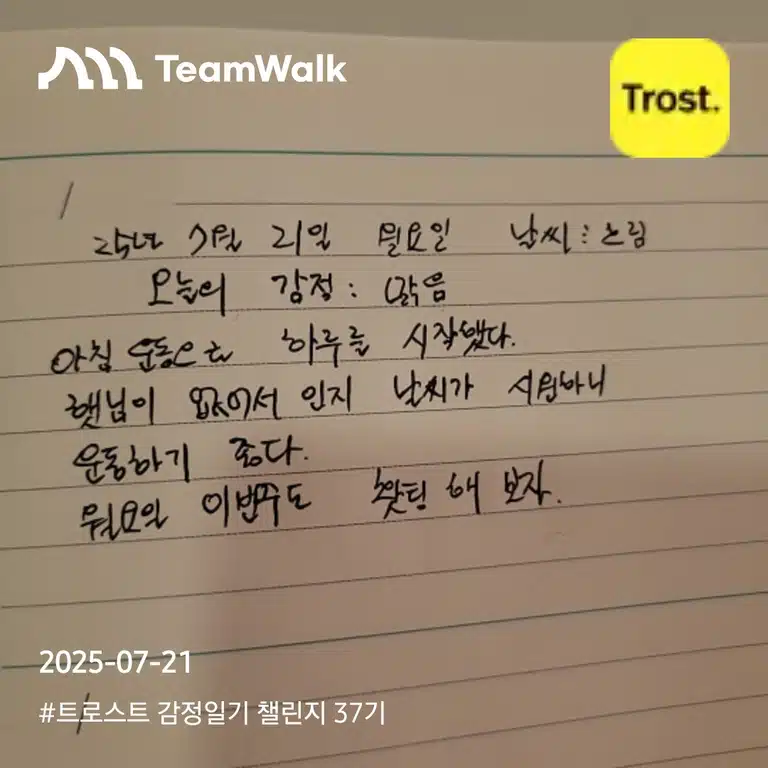 TeamWalk
Trost.
25년 7월 21일 월요일 날씨: 흐림
오늘의 감정: 맑음
아침 운동으로 하루를 시작했다.
햇님이 없어서 인지 날씨가 시원하니
운동하기 좋다.
월요일 이번주도 홧팅 해 보자.
2025-07-21
#트로스트 감정일기 챌린지 37기